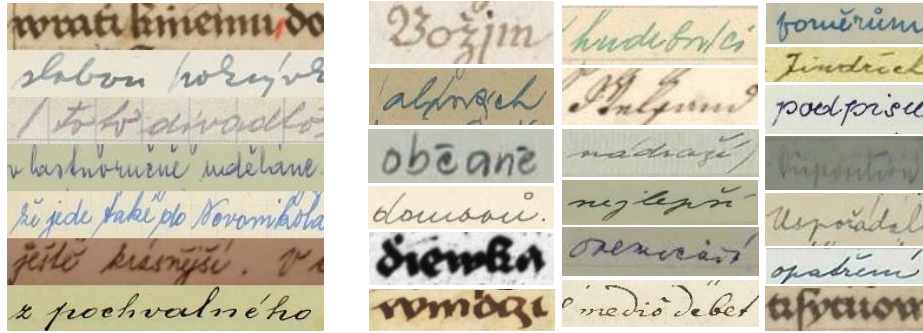 wrati kniemu do
slabou pokrývk
toto divadlo
vlastnoručně udělané.
že jede také do Novomikola
ještě krásnější. V
z pochvalného
Božjm
alpských
občané
domovů.
diewka
wmoczi
hudebníci
nádraží,
nejlepší
medio debet
poměrům
Jindřich
podpise
Disposition
Uspořádal
opatření
tisyciuow